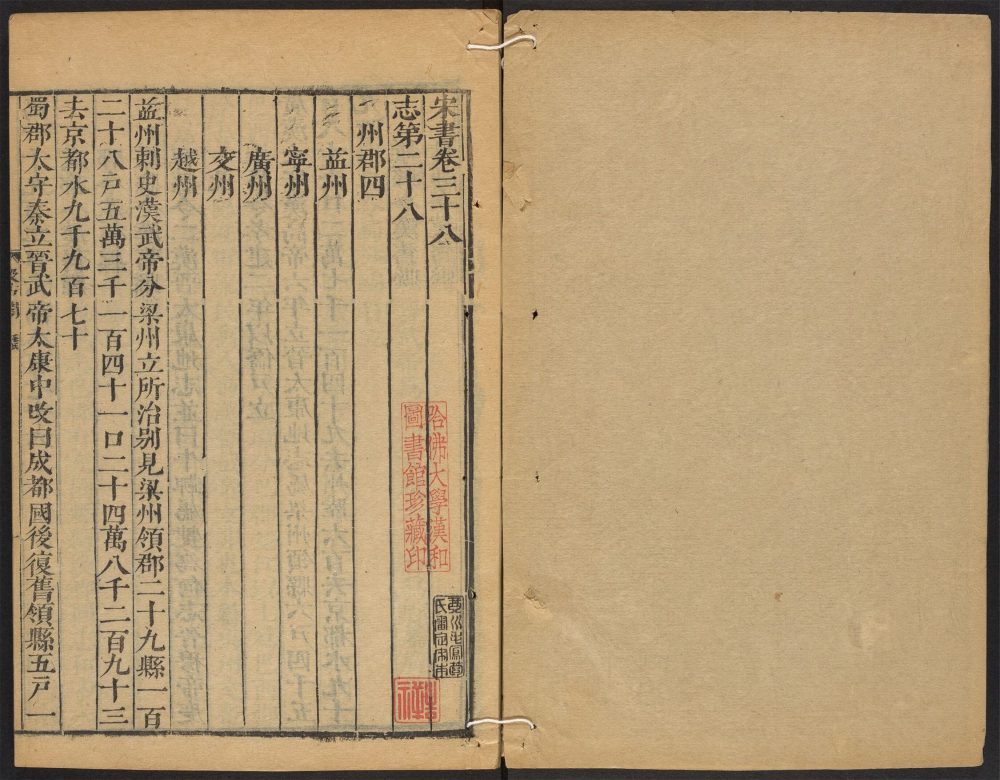 宋書卷三十八
志第二十八
州郡四
益州
寧州
廣州
交州
越州
益州刺史漢武帝分梁州立所治别見梁州領郡二十九縣一百
二十八戸五萬三千一百四十一口二十四萬八千二百九十三
去京都水九千九百七十
蜀郡太守秦立晉武帝太康中改曰成都國後復舊領縣五戸一
哈佛大學漢和
圖書館珍藏印